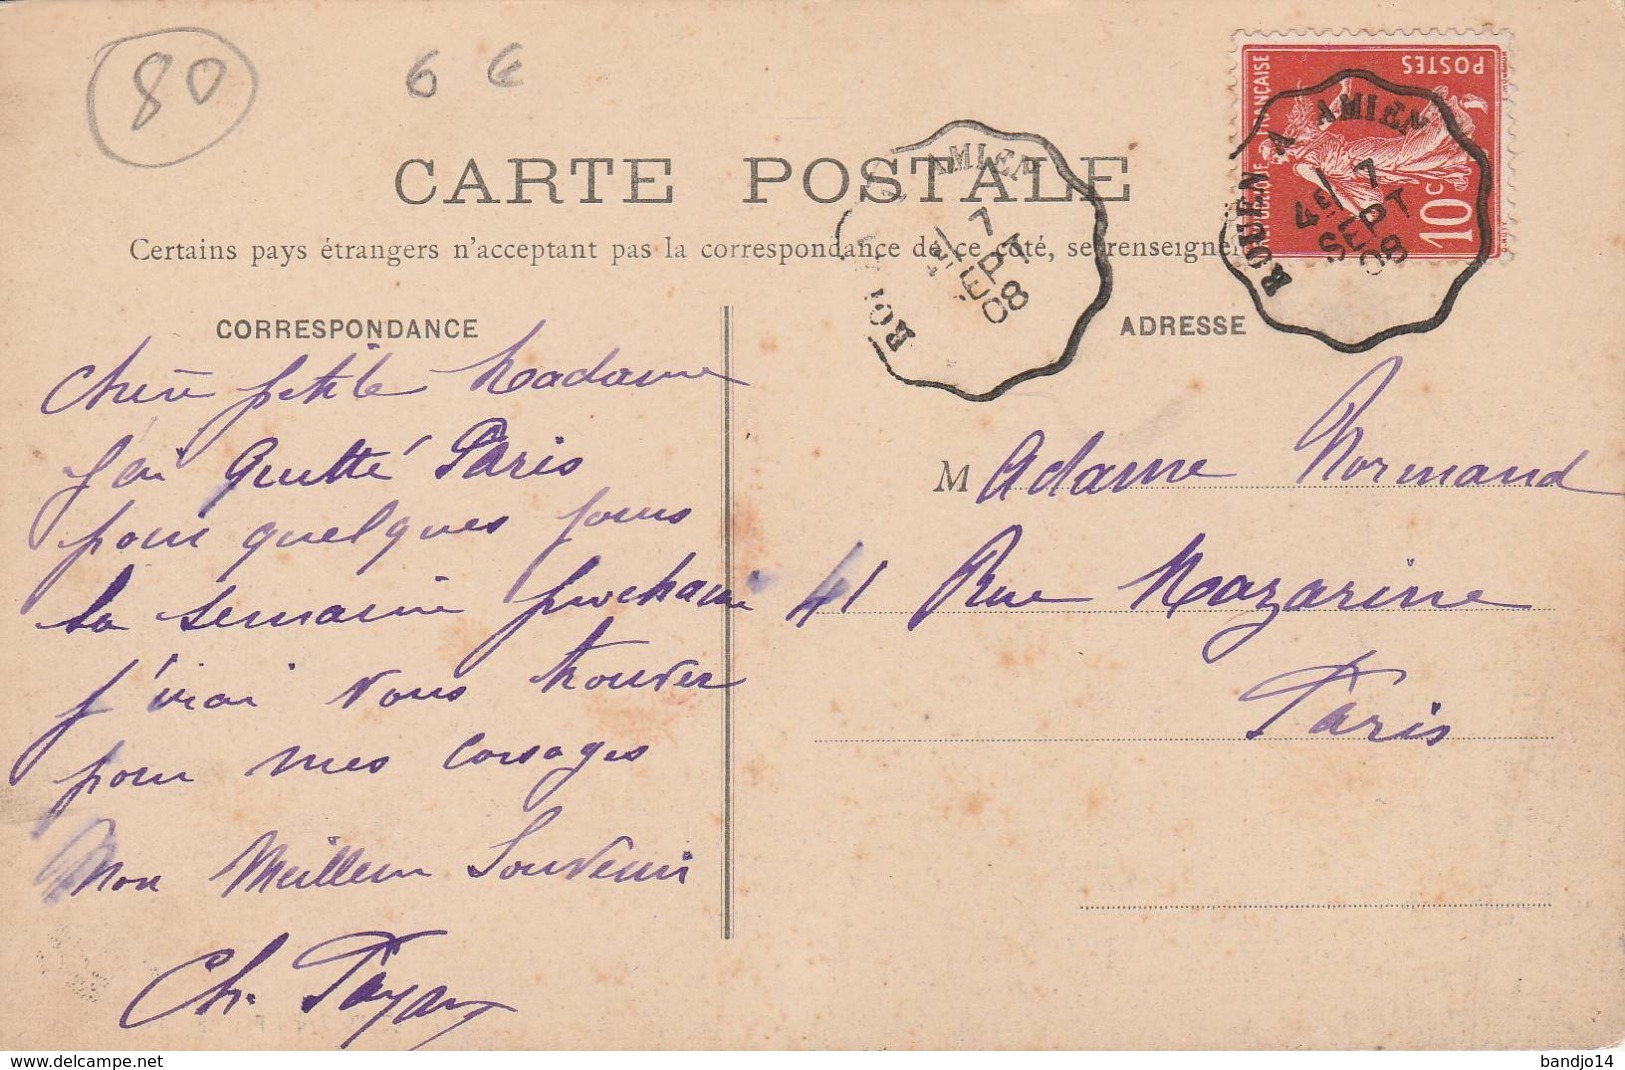 80
6 €
CARTE POSTALE
Certains pays étrangers n'acceptent pas la correspondance de ce côté, se renseigner
CORRESPONDANCE
Chère petite Madame
J'ai Quitté Paris
pour quelques jours
la semaine prochaine
j'irai vous trouver
pour mes corsages
Mon Meilleur Souvenir
Ch. Payan
ADRESSE
Madame Normand
41 Rue Mazarine
Paris
ROUEN A AMIENS
4E 7
SEPT
08
ROUEN A AMIENS
4E 7
SEPT
08
POSTES
10c
www.delcampe.net
bandjo14